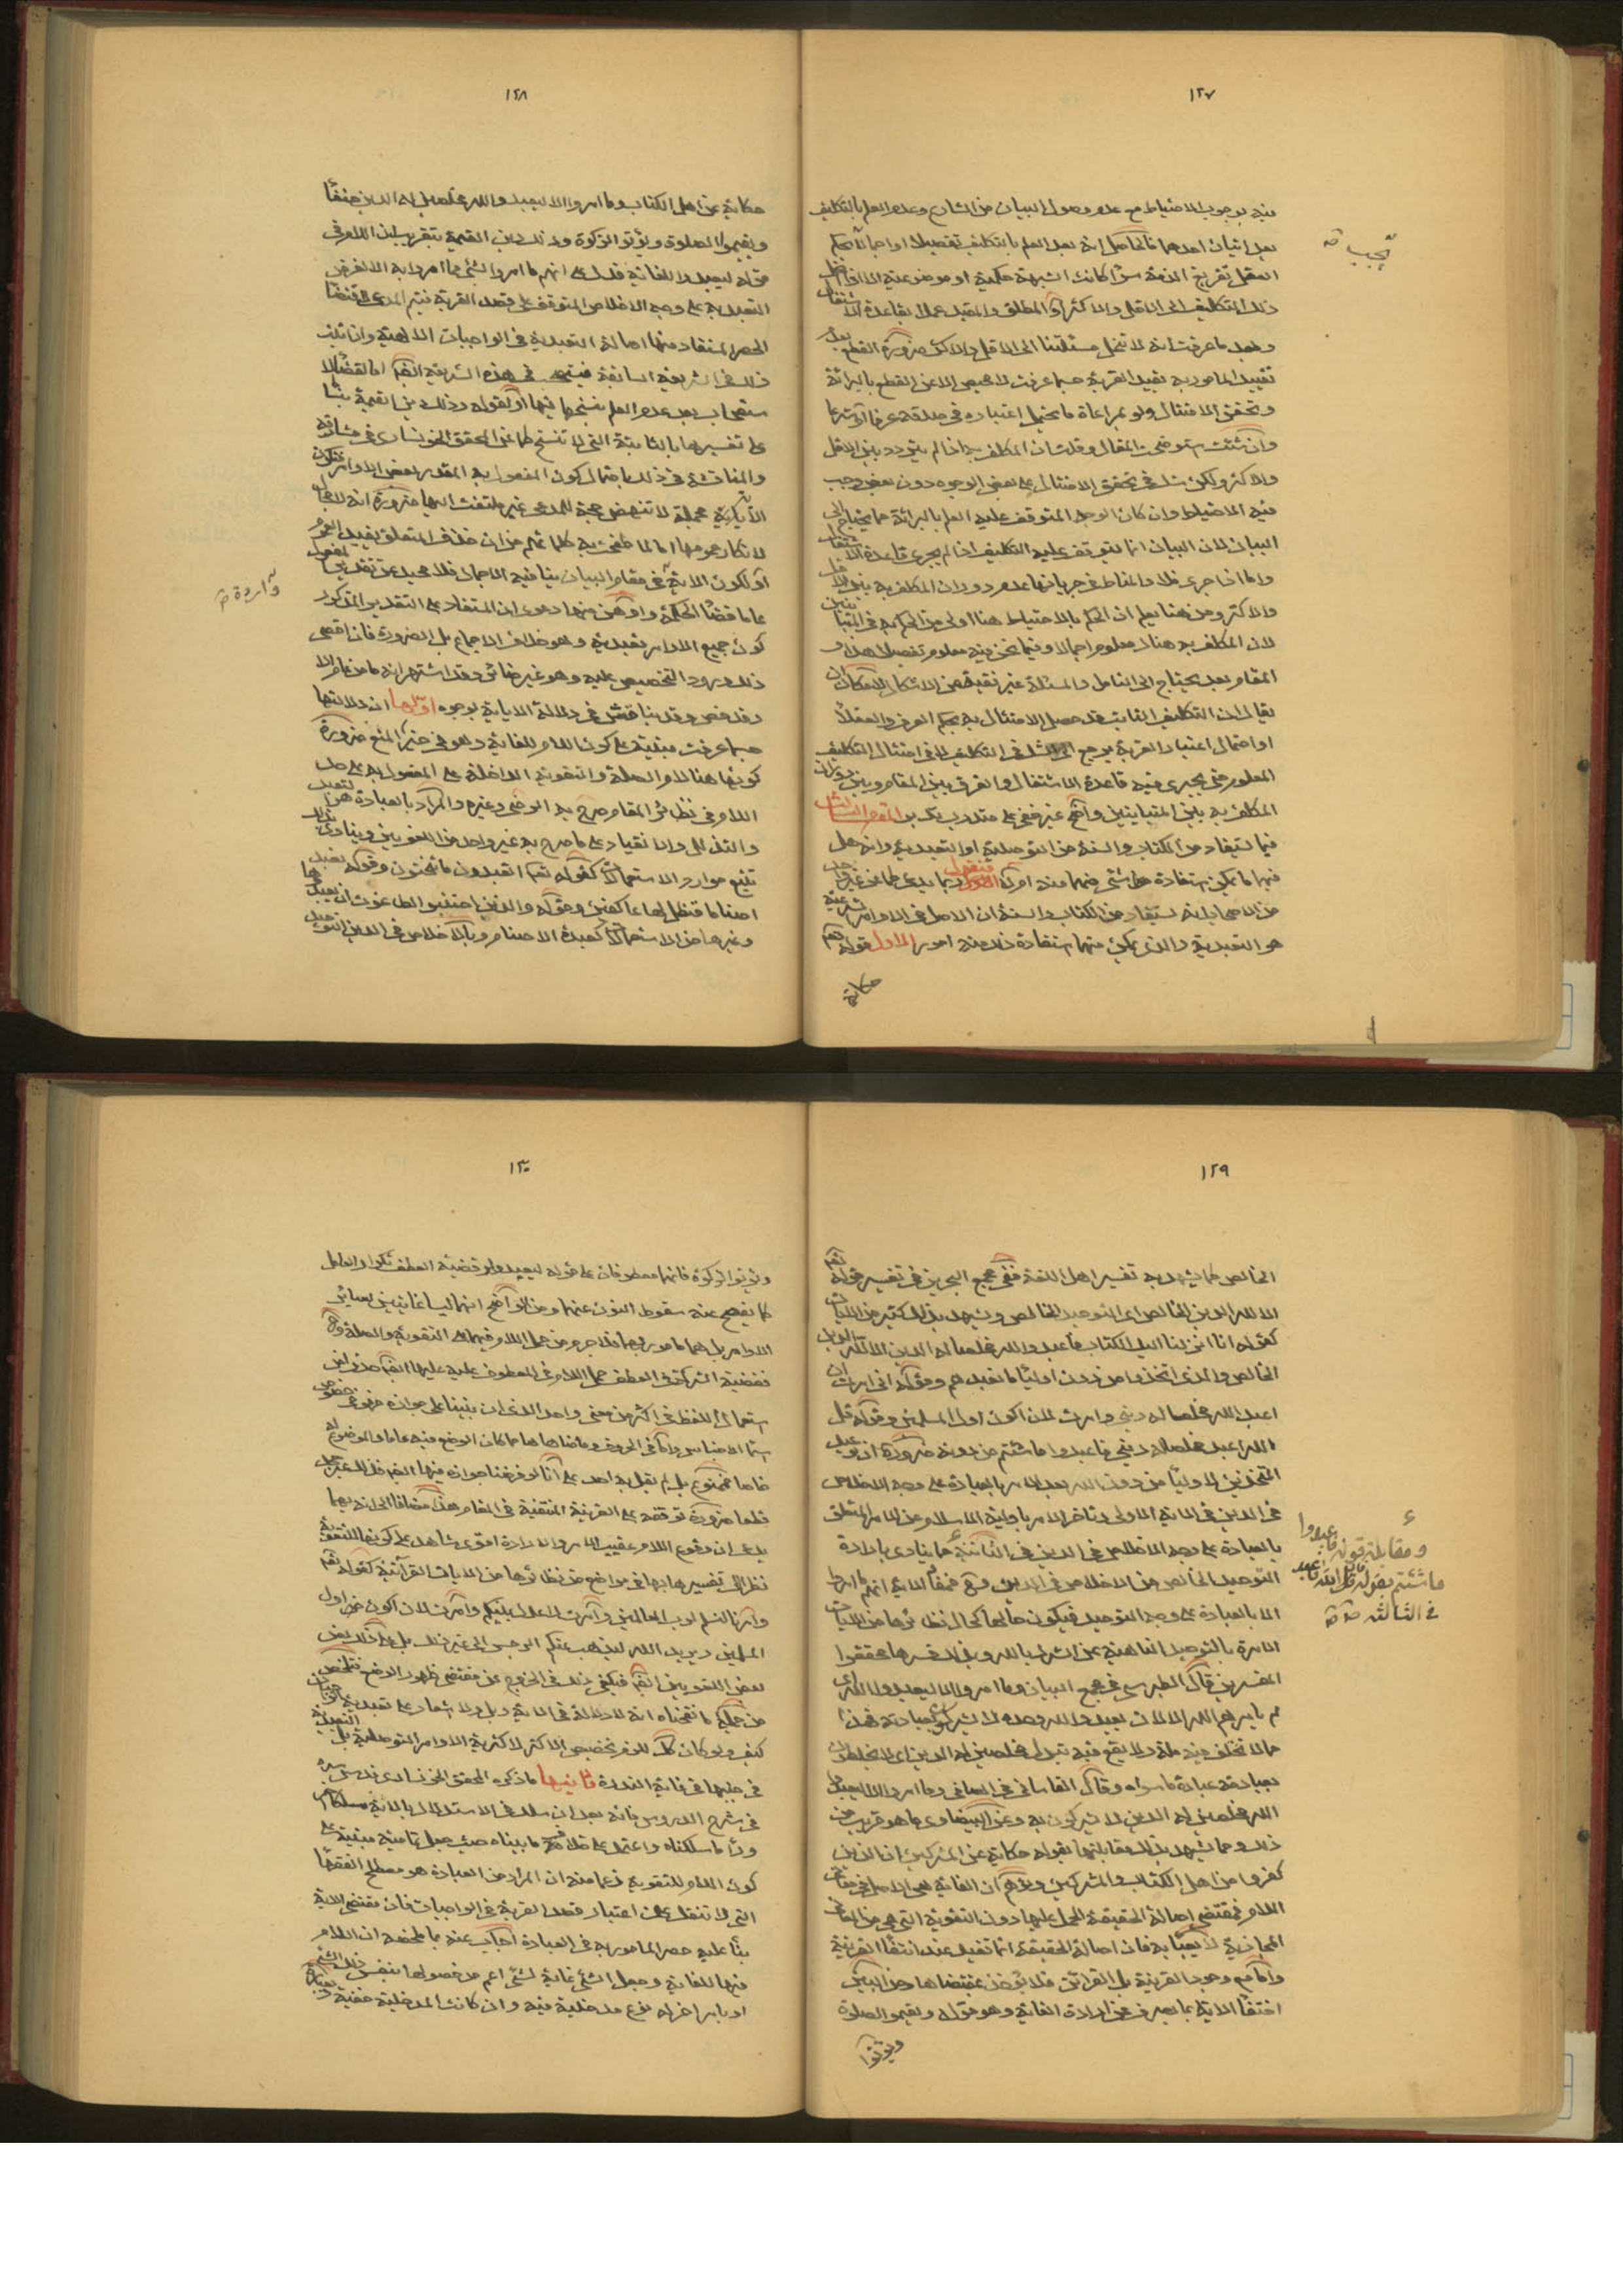 ١٢٧
فيه بوجوب الاحتياط مع عدم وصول البيان من الشارع وعدم العلم بالتكليف
بعد اتيان احدهما فالحاصل انه بعد العلم بالتكليف تفصيلا او اجمالا يحكم
العقل تفريغ الذمة سواء كانت الشبهة حكمية او موضوعية الا اذا
ذلك التكليف الى الاقل والاكثر او المطلق والمقيد عملا بقاعدة الاشتغال
وبعد ما عرفت انه لا تنحل مسئلتنا الى الاقل والاكثر ضرورة القطع بعدم
تقييد المامور به بقيد القربة حسبما عرفت لا محيص الا عن القطع بالبرائة
وتحقق الامتثال ولو بمراعاة ما يحتمل اعتباره في صدقه عرفا
وان شئت توضيح المقال وقلت ان المكلف به اذا لم يتردد بين الاقل
والاكثر ولكن شك في تحقق الامتثال على بعض الوجوه دون بعض وجب
فيه الاحتياط وان كان الوجه المتوقف عليه العلم بالبرائة مما يحتاج الى
البيان لان البيان انما يتوقف عليه التكليف اذا لم يجرى قاعدة الاشتغال
واما اذا جرى فلا والمناط في جريانها عدم دوران المكلف به بين الاقل
والاكثر ومن هنا يعلم ان الحكم بالاحتياط هنا اولى من الحكم به في المتباينين
لان المكلف به هناك معلوم اجمالا وفيما نحن فيه معلوم تفصيلا هذا و
المقام بعد يحتاج الى التامل والمسئلة غير نقية عن الاشكال لامكان ان
يقال ان التكليف الثابت قد حصل الامتثال به بحكم العرف والعقلاء
او احتمال اعتبار القربة يرجع الى الشك في التكليف لا في امتثال التكليف
المعلوم حتى يجرى فيه قاعدة الاشتغال والفرق بين المقام وبين دوران
المكلف به بين المتباينين واضح غير خفي على متدرب المقام الثالث
فيما يستفاد من الكتاب والسنة من التوصلية او التعبدية وانه هل
فيهما ما يمكن استفادة شئ منهما منه ام لا فنقول ربما يدعى كما عن غير واحد
من الاصحاب انه يستفاد من الكتاب والسنة ان الاصل في الاوامر الشرعية
هو التعبدية والذي يمكن منهما استفادة ذلك منه امور الاول قوله تعم
حكاية
١٢٨
حكاية عن اهل الكتاب وما امروا الا ليعبدوا الله مخلصين له الدين حنفاء
ويقيموا الصلوة ويؤتوا الزكوة وذلك دين القيمة بتقريب ان اللام في
قوله ليعبدوا للغاية فدل على انهم ما امروا بشئ مما امروا به الا لغرض
التعبد به على وجه الاخلاص المتوقف على قصد القربة فيتم المدعى قضاء
الحصر المستفاد منها اصالة التعبدية في الواجبات الالهية واذا ثبت
ذلك في الشريعة السابقة فيثبت في هذه الشريعة ايضا اما لقضاء الا
ستصحاب بعد عدم العلم بنسخها فيها او لقوله وذلك دين القيمة بناء
على تفسيرها بالثابتة التي لا تنسخ كما عن المحقق الخونساري في مشارقه
والمناقشة في ذلك باحتمال كون المفعول به المقدر بعض الاوامر فتكون
الاية مجملة لا تنهض حجة للمدعى غير ملتفت اليها ضرورة انه لا مجال
لانكار عمومها اما لما طفحت به كلماتهم من ان حذف المتعلق يفيد العموم
او لكون الاية في مقام البيان ينافيه الاجمال فلا محيد عن تقدير المفعول
عاما قضاء للحكمة واوهن منها دعوى ان المستفاد على التقدير المذكور
كون جميع الاوامر تعبدية وهو خلاف الاجماع بل الضرورة فان اقصى
ذلك ورود التخصيص عليه وهو غير ضائر وقد اشتهر انه ما من عام الا
وقد خص وقد يناقش في دلالة الاية بوجوه اولها ان دلالتها
حسبما عرفت مبنية على كون اللام للغاية وهو في حيز المنع ضرورة
كونها هنا لام الصلة والتقوية الداخلة على المفعول به على حد
اللام في نظائر المقام صرح به الرضى وغيره والمراد بالعبادة هو التعبد
والتذلل والانقياد على ما صرح به غير واحد من اللغويين وينادى بذلك
تتبع موارد الاستعمال كقوله تعم اتعبدون ما تنحتون وقوله نعبد
اصناما فنظل لها عاكفين وقوله والذين اجتنبوا الطاغوت ان يعبدوها
وغيرها من الاستعمالات كعبدة الاصنام وبالاخلاص في الدين التوحيد
١٢٩
الخالص كما يشهد به تفسير اهل اللغة ففي مجمع البحرين في تفسير قوله تعم
الا لله الدين الخالص اي التوحيد الخالص ويشهد بذلك كثير من الايات
كقوله انا انزلنا اليك الكتاب فاعبد الله مخلصا له الدين الا لله الدين
الخالص والذين اتخذوا من دونه اولياء ما نعبدهم وقوله اني امرت ان
اعبد الله مخلصا له ديني وامرت لان اكون اول المسلمين وقوله قل
الله اعبد مخلصا له ديني فاعبدوا ما شئتم من دونه ضرورة ان
المتخذين لاولياء من دون الله بعد الامر بالعبادة على وجه الاخلاص
في الدين في الاية الاولى وتاخر الامر باولية الاسلام عن الامر المتعلق
بالعبادة على وجه الاخلاص في الدين في الثانية مما ينادى بارادة
التوحيد الخالص من الاخلاص في الدين فمفاد الاية انهم ما امروا
الا بالعبادة على وجه التوحيد فيكون حالها كحال نظائرها من الايات
الامرة بالتوحيد الناهية عن الشرك بالله وبذلك فسرها محققوا
المفسرين قال الطبرسي في مجمع البيان وما امروا الا ليعبدوا الله اي
لم يامرهم الله الا لان يعبدوا الله وحده لا يشركون بعبادته فهذا
مما لا تختلف فيه ملة ولا يقع فيه تبدل مخلصين له الدين اي لا يخلطون
بعبادته عبادة ما سواه وقال القاساني في الصافي وما امروا الا ليعبدوا
الله مخلصين له الدين لا يشركون به وعن البيضاوى ما هو قريب من
ذلك ومما يشهد بذلك مقابلتها بقوله حكاية عن المشركين ان الذين
كفروا من اهل الكتاب والمشركين وتوهم ان الغاية هي الاصل في معاني
اللام فمقتضى اصالة الحقيقة الحمل عليها دون التقوية التي هي من المعاني
المجازية لا يعبأ به فان اصالة الحقيقة انما تفيد عند انتفاء القرينة
واما مع وجود القرينة بل القرائن فلا يؤخذ بمقتضاها ومن البين
احتفاء الاية بما يصرف عن ارادة الغاية وهو قوله ويقيموا الصلوة
ويؤتوا
١٣٠
ويؤتوا الزكوة فانهما معطوفان على قوله ليعبدوا وقضية العطف تكرار العامل
كما يفصح عنه سقوط النون عنهما ومن الواضح انهما ليسا غايتين لسائر
الاوامر بل هما مامور بهما فلا جرم من حمل اللام فيهما على التقوية والصلة
فقضية الشركة في العطف حمل اللام في المعطوف عليه عليها ايضا
استعمال اللفظ في اكثر من معنى واحد الذي ان بنينا على جوازه في
سيما الاجناس واما في الحروف وما ضاهاها مما كان الوضع فيه عاما والموضوع له
خاصا فممنوع بل لم يقل به احد على انا لو فرضنا جوازه فيها ايضا
قطعا ضرورة توقفه على القرينة المنتفية في المقام هذا مضافا الى انه ربما
يدعى ان وقوع اللام عقيب الامر والارادة اقوى شاهد على كونها للتقوية
نظرا الى تفسيرها بها في مواضع من نظائرها من الايات القرآنية كقوله تعم
وامرنا لنسلم لرب العالمين وامرت لاعدل بينكم وامرت لان اكون من اول
المسلمين ويريد الله ليذهب عنكم الرجس الى غير ذلك بل على ذلك نص
بعض اللغويين ايضا فيكفي ذلك في الخروج عن مقتضى ظهور الوضع فتلخص
من جميع ما نقحناه انه لا دلالة في الاية ولا اشعار على تعبدية الواجبات
كيف ولو كان كك للزم تخصيص الاكثر لاكثرية الاوامر التوصلية بل التعبدية
في جنبها في غاية الندرة ثانيها ما ذكره المحقق الخونسارى قدس سره
في شرح الدروس فانه بعد ان سلك في الاستدلال بالاية مسلكا
وراء ما سلكناه واعتمد على خلاف ما بيناه حيث جعل تمامية مبنية على
كون اللام للتقوية زعما منه ان المراد من العبادة هو مصطلح الفقهاء
التي لا تنفك عن اعتبار قصد القربة في الواجبات فان مقتضى الاية
بناء عليه حصر المامور به في العبادة اجاب عنه بما ملخصه ان اللام
فيها للغاية وجعل الشئ غاية لشئ اعم من حصولها بنفس ذلك الشئ
او بامر اخر له نوع مدخلية فيه وان كانت المدخلية خفية